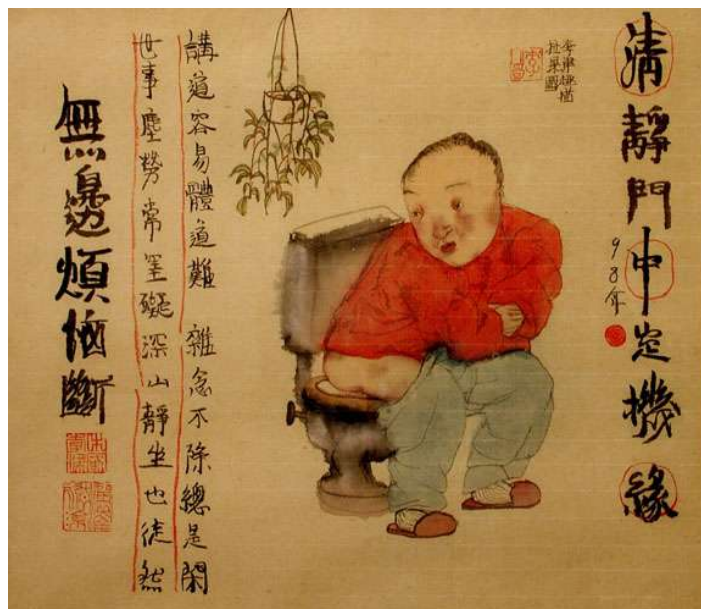 清靜門中定機緣
98年
講道容易體道難 雜念不除總是閑
世事塵勞常罣礙深山靜坐也徒然
無邊煩惱斷